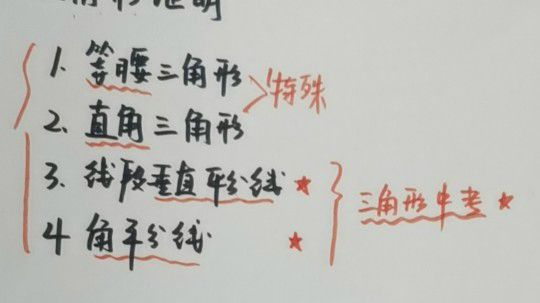 角形证明
1. 等腰三角形
2. 直角三角形
特殊
3. 线段垂直平分线 ★
4 角平分线 ★
三角形中考 ★